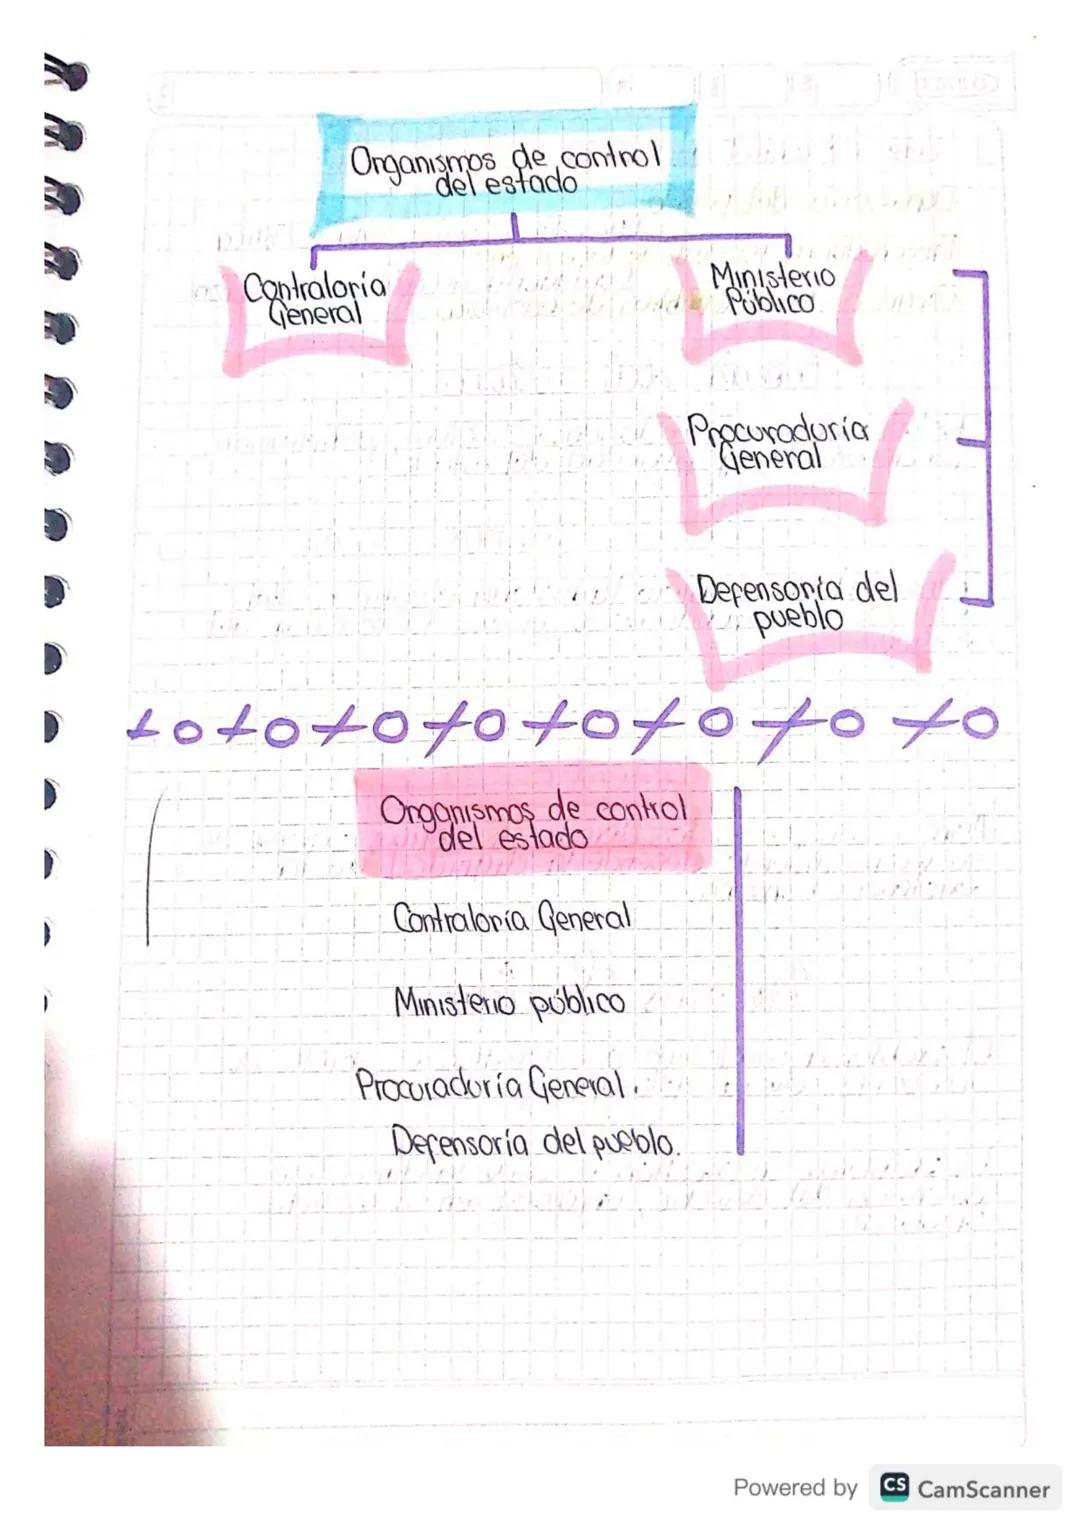 Organismos de control
del estado
Contraloría
General
Ministerio
Público
Procuraduría
General
Defensoría del
pueblo
Organismos de control
del estado
Contraloría General
Ministerio público
Procuraduría General.
Defensoría del pueblo.
Powered by CS CamScanner